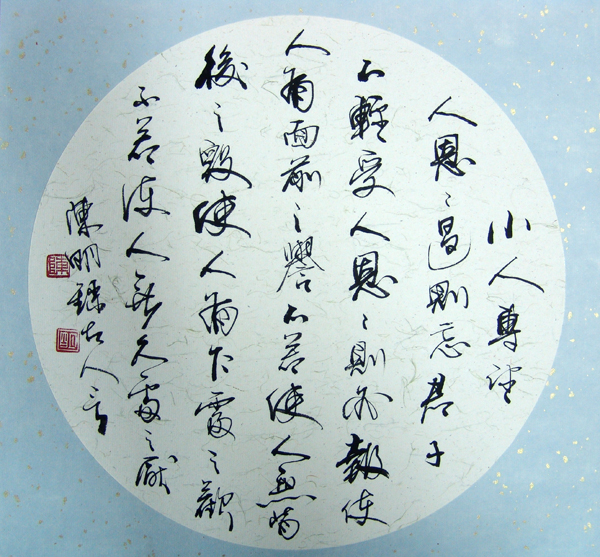 小人專望
人恩〻過則忘君子
不輕受人恩〻則必報使
人有面前之譽不若使人無背
後之毀使人有乍處之歡
不若使人無久處之厭
陳明録古人言